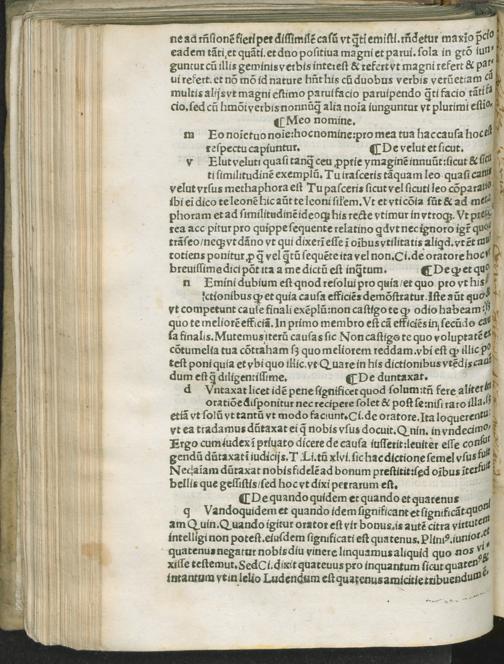 ne ad rñsionē fieri per dissimilē casū vt q̄ti emisti. rñdetur maxīo p̄cio
eadem tāti, et quāti. et duo positiua magni et parui. sola in gr̄o iun-
guntur cū illis geminis verbis interest & refert vt magni refert & par
ui refert. et nō mō id nature hñt hi cū duobus verbis verū etiam cū
multis alijs vt magni estimo parui facio paruipendo q̄ti facio tāti fa
cio. sed cū hmōi verbis nonnūq̄ alia noīa iunguntur vt plurimi estio.
¶Meo nomine.
m Eo noīe tuo noīe: hoc nomine: pro mea tua hac causa hoc est
respectu capiuntur. ¶De velut et sicut.
v Elut veluti quasi tanq̄ ceu p̱prie ymaginē innuūt: sicut & sicu
ti similitudinē exemplū. Tu irasceris tāquam leo quasi canis
velut vrsus methaphora est Tu pasceris sicut vel sicuti leo cōparatio
ibi ei dico te leonē hic aūt te leoni siłem. Vt et vti cōia sūt & ad meta
phoram et ad similitudinē ideoq; his recte vtimur in vtroq;. Vt prete
rea accipitur pro quippe sequente relatino q̄d vt nec ignoro igē quod
trāseo/ neq; vt dāno vt qui dixerī esse ī oībus vtilitatis aliqd. vt ēt mu
totiens ponitur, p̱ q̄ vel q̄tū sequēte ita vel non. Ci. de oratore hoc vt
breuissime dici pōt ita a me dictū est inq̄tum. ¶De q̱ et quo
n Emini dubium est qnod resolui pro quia/et quo pro vt his
dictionibus q̱ et quia causa efficiēs demōstratur. Iste aūt quo &
vt competunt cause finali exēplū: non castigo te q̱ odio habeam
quo te meliorē efficiā. In primo membro est cā efficiēs in secūdo cau
sa finalis. Mutemus iterū causas sic Non castigo te quo voluptatē ex
cōtumelia tua cōtraham s; quo meliorem reddam. vbi est q̱ illic po
test poni quia et vbi quo illic. vt Quare in his dictionibus vtēdis cauē
dum est q̄ diligentissime. ¶De duntaxat.
d Vntaxat licet idē pene significet quod solum: tū fere aliter in
oratiōe disponitur nec recipere solet & post se: nisi raro illa. s;
etiā vt solū vt tantū vt modo faciunt. Ci. de oratore. Ita loquerentur
vt ea tradamus dūtaxat ei q̄ nobis vsus docuit. Q uin. in vndecimo.
Ergo cum iudex ī priuato dicere de causa iusserit: leuiter esse consur
gendū dūtaxat ī iudicijs. T. Li. tū xlvi. sic hac dictione semel vsus fuit
Nec iam dūtaxat nobis fidelē ad bonum prestitit: sed oībus īterfuit
bellis que gessistis/ sed hoc vt dixi per rarum est.
¶De quando quidem et quando et quatenus
q Vandoquidem et quando idem significant et significāt quoni
am Quin. Quando igitur orator est vir bonus. is autē citra virtutem
intelligi non potest. eiusdem significati est quatenus. Plinꝰ. iunior. et
quatenus negatur nobis diu viuere linquamus aliquid quo nos vi-
xisse testemur. Sed Ci. dixit quateuus pro inquantum sicut quatenꝰ &
intantum vt in lelio Ludendum est quatenus amicitie tribuendum ē.